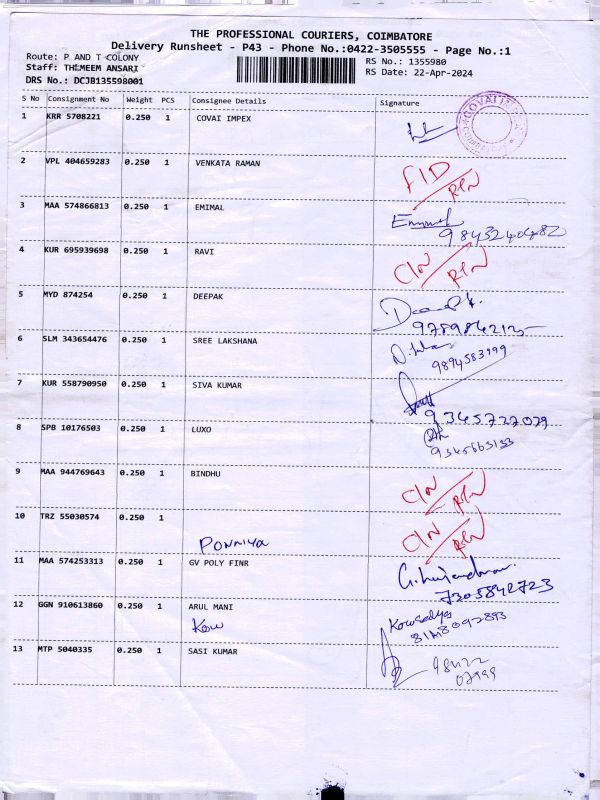 THE PROFESSIONAL COURIERS, COIMBATORE
Delivery Runsheet - P43 - Phone No.:0422-3505555 - Page No.:1
Route: P AND T COLONY
RS No.: 1355980
Staff: THEMEEM ANSARI
RS Date: 22-Apr-2024
DRS No.: DCJB135598001
S No Consignment No Weight PCS Consignee Details Signature
1 KRR 5708221 0.250 1 COVAI IMPEX
COVAI
2 VPL 404659283 0.250 1 VENKATA RAMAN
FID/RTN
3 MAA 574866813 0.250 1 EMIMAL
9843240482
4 KUR 695939698 0.250 1 RAVI
C/N/RTN
5 MYD 874254 0.250 1 DEEPAK
Deepak.
6 SLM 343654476 0.250 1 SREE LAKSHANA
9894583999
7 KUR 558790950 0.250 1 SIVA KUMAR
9345727029
8 SPB 10176503 0.250 1 LUXO
9 MAA 944769643 0.250 1 BINDHU
C/N/RTN
10 TRZ 55030574 0.250 1
PONNIYA
C/N/RTN
11 MAA 574253313 0.250 1 GV POLY FINR
7305842723
12 GGN 910613860 0.250 1 ARUL MANI
Kow
Kowsalya
13 MTP 5040335 0.250 1 SASI KUMAR
98422
07999